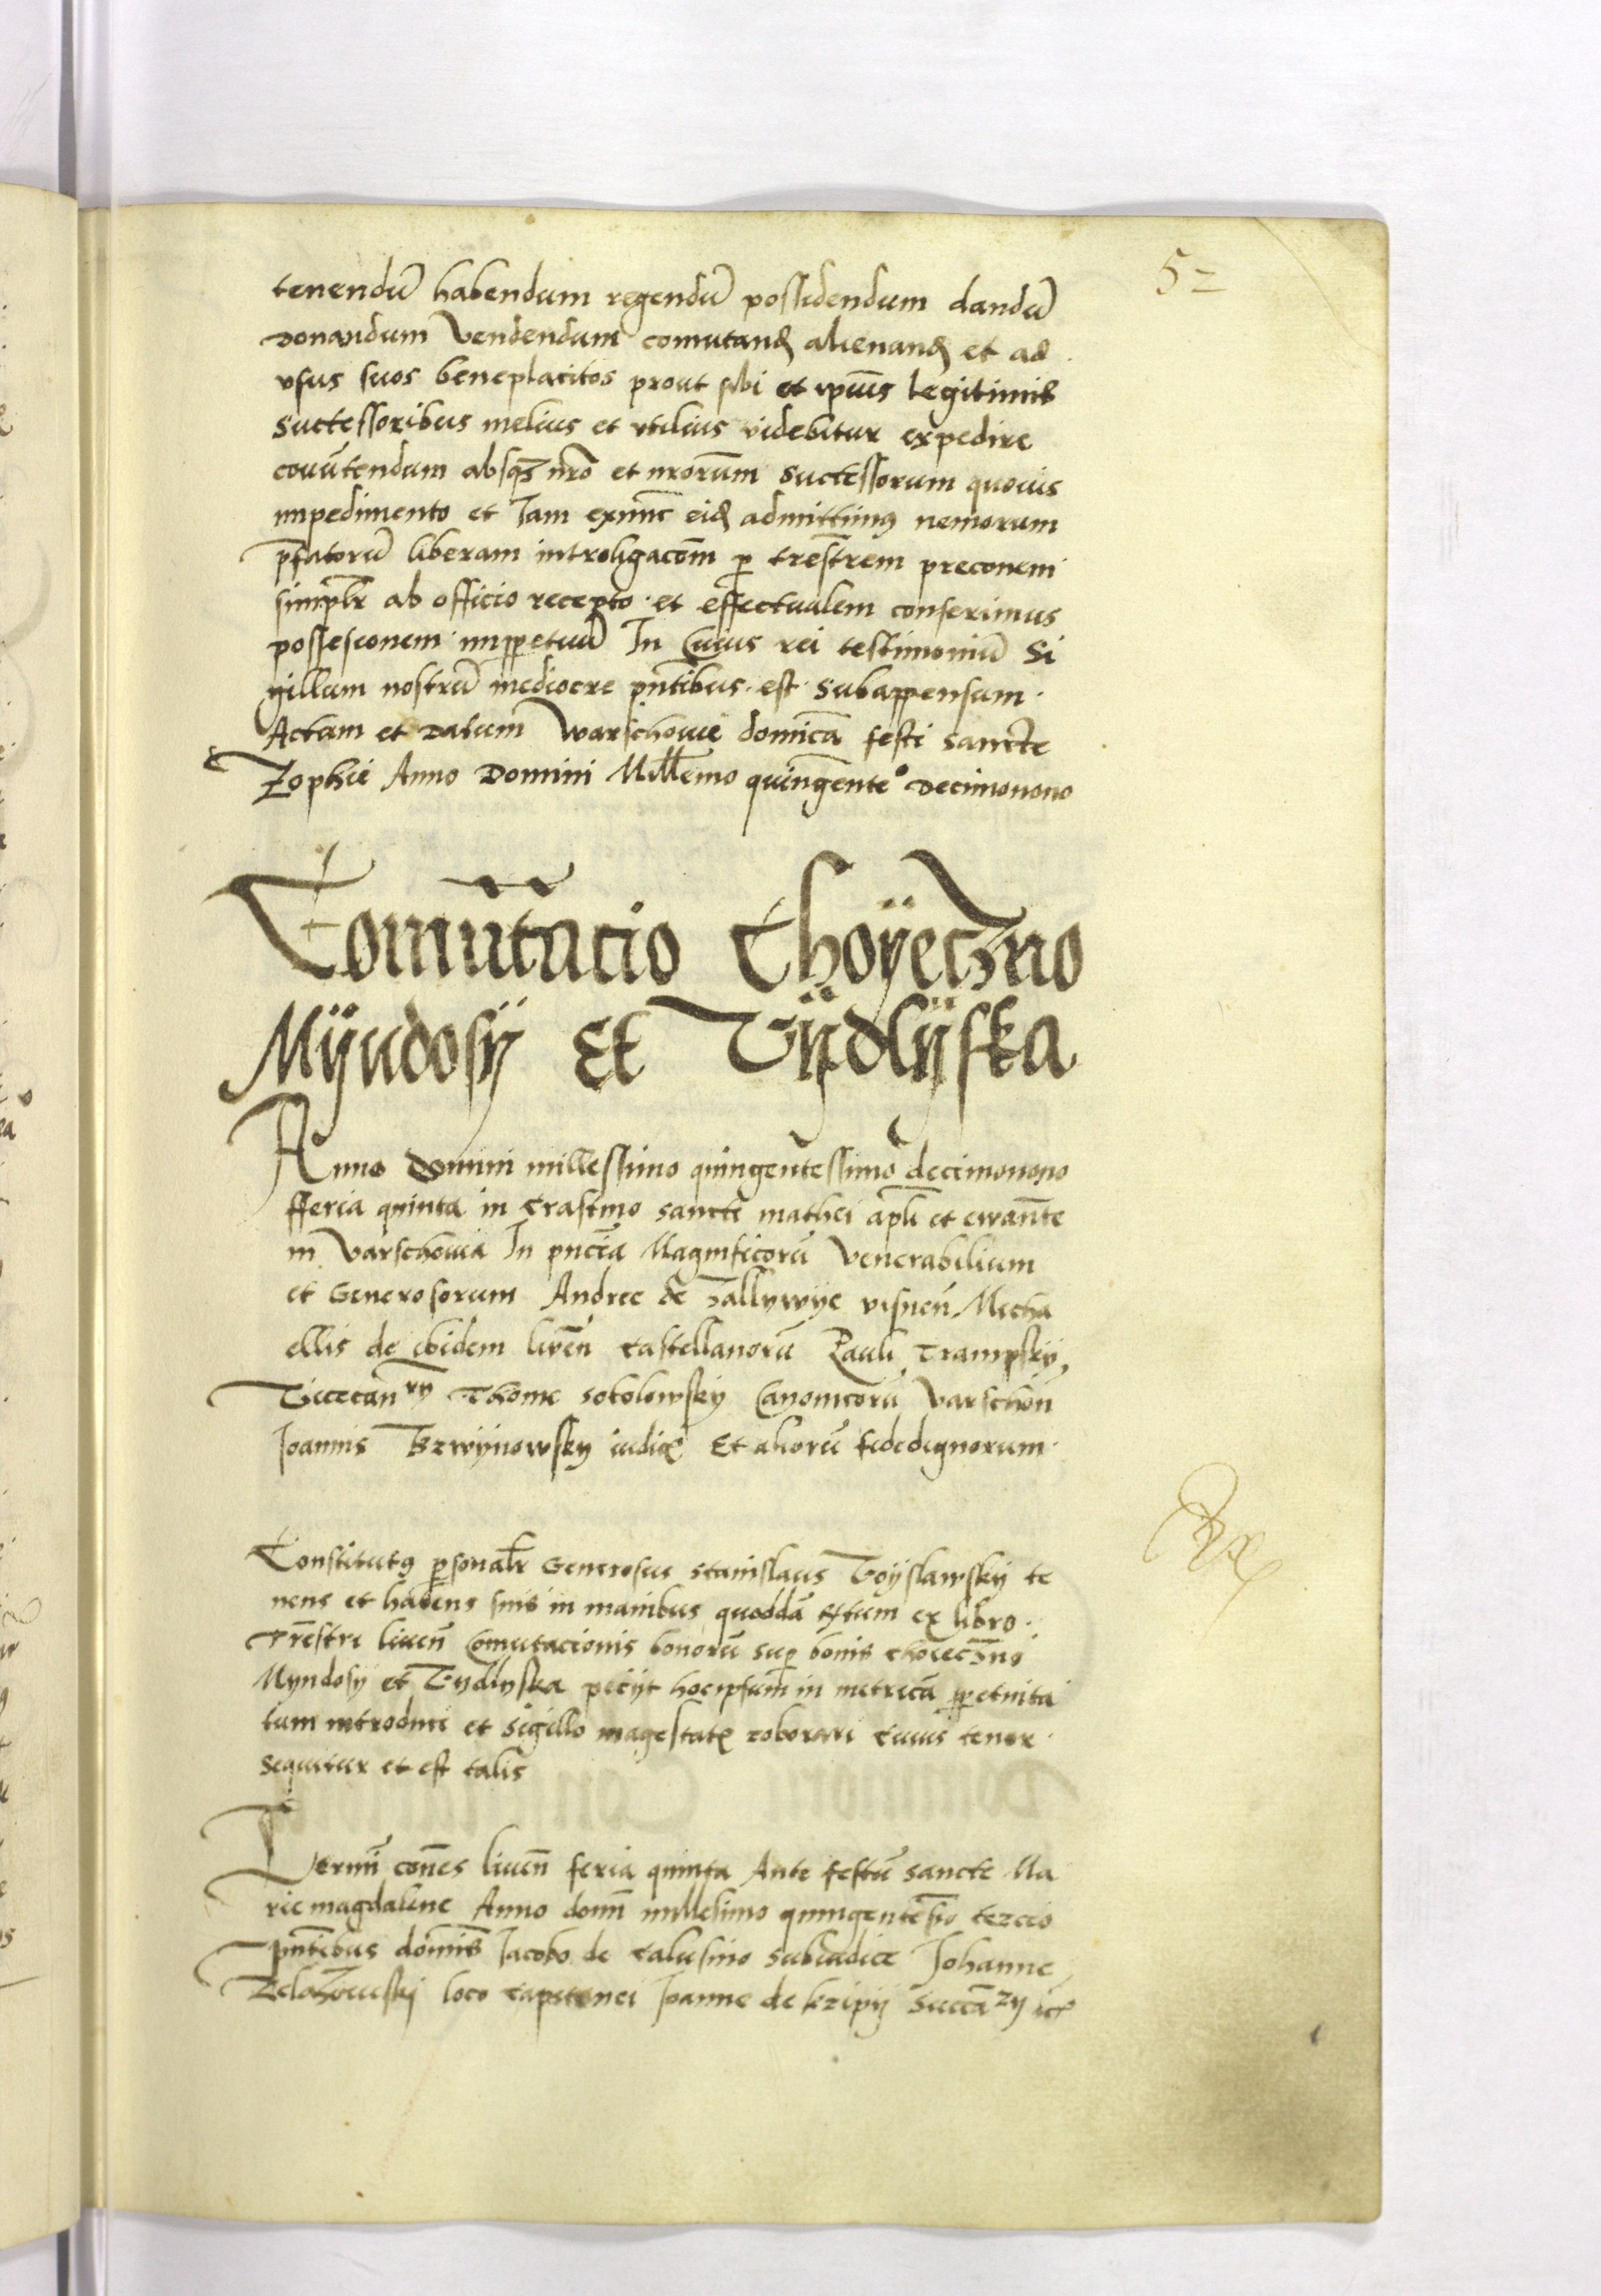 52
tenendū habendum regendū possidendum dandū
Donandum Vendendum comutand alienand et ad
vsus suos beneplacitos prout sibi et ipius legitimis
Successoribus melius et vtilius videbitur expedire
couūtendum absq nr̄o et nr̄orum Successorum quouis
impedimento et Iam exnunc eid admittimus nemorum
p̄fatorū liberam introligacōm p trēstrem preconem
simplr̄ ab officio recepto et effectualem conferimus
possessionem imppetuū In Cuius rei testimoniū Si
gillum nostrū mediocre pn̄tibus est Subappensum
Actum et Datum Warschouie domīca festi Sancte
Zophie Anno Domini Millemo quingente° Decimonono
Comūtacio Choyeczno
Myndosy Et Vydlyska
Anno Domini millessimo quingentessimo decimonono
fferia quinta in Crastino sancti mathei apli et ewan̄te
in Varschouia In pn̄cia Magnificorū Venerabilium
et Generosorum Andree de Zallywye visnen̄ Micha
ellis de ibidem liuen̄ Castellanorū Pauli Trampsky
Vicecan ry Thome sokolowsky Canonicorū Varschon̄
Joannis Brwynowsky iudic Et aliorū fidedignorum
Constitutus psonalr̄ Generosus stanislaus Voyslawsky te
nens et habens suis in manibus quoddā extum ex libro
Trēstri liuen̄ Comutacionis bonorū sup bonis choieczno
Myndosy et Vydlyska peciit hocipsum in metricā ppetuita
tum introduci et sigillo magestatꝭ roborari cuius tenor
sequitur et est talis
Termī con̄es liuen̄ feria quinta Ante festū sancte Ma
rie magdalene Anno domī millesimo quingentēsio tercio
pn̄tibus domīs Iacobo de Calusino subiudice Johanne
Zelazowsky loco Capitanei Joanne de krzipy Succā ry etc